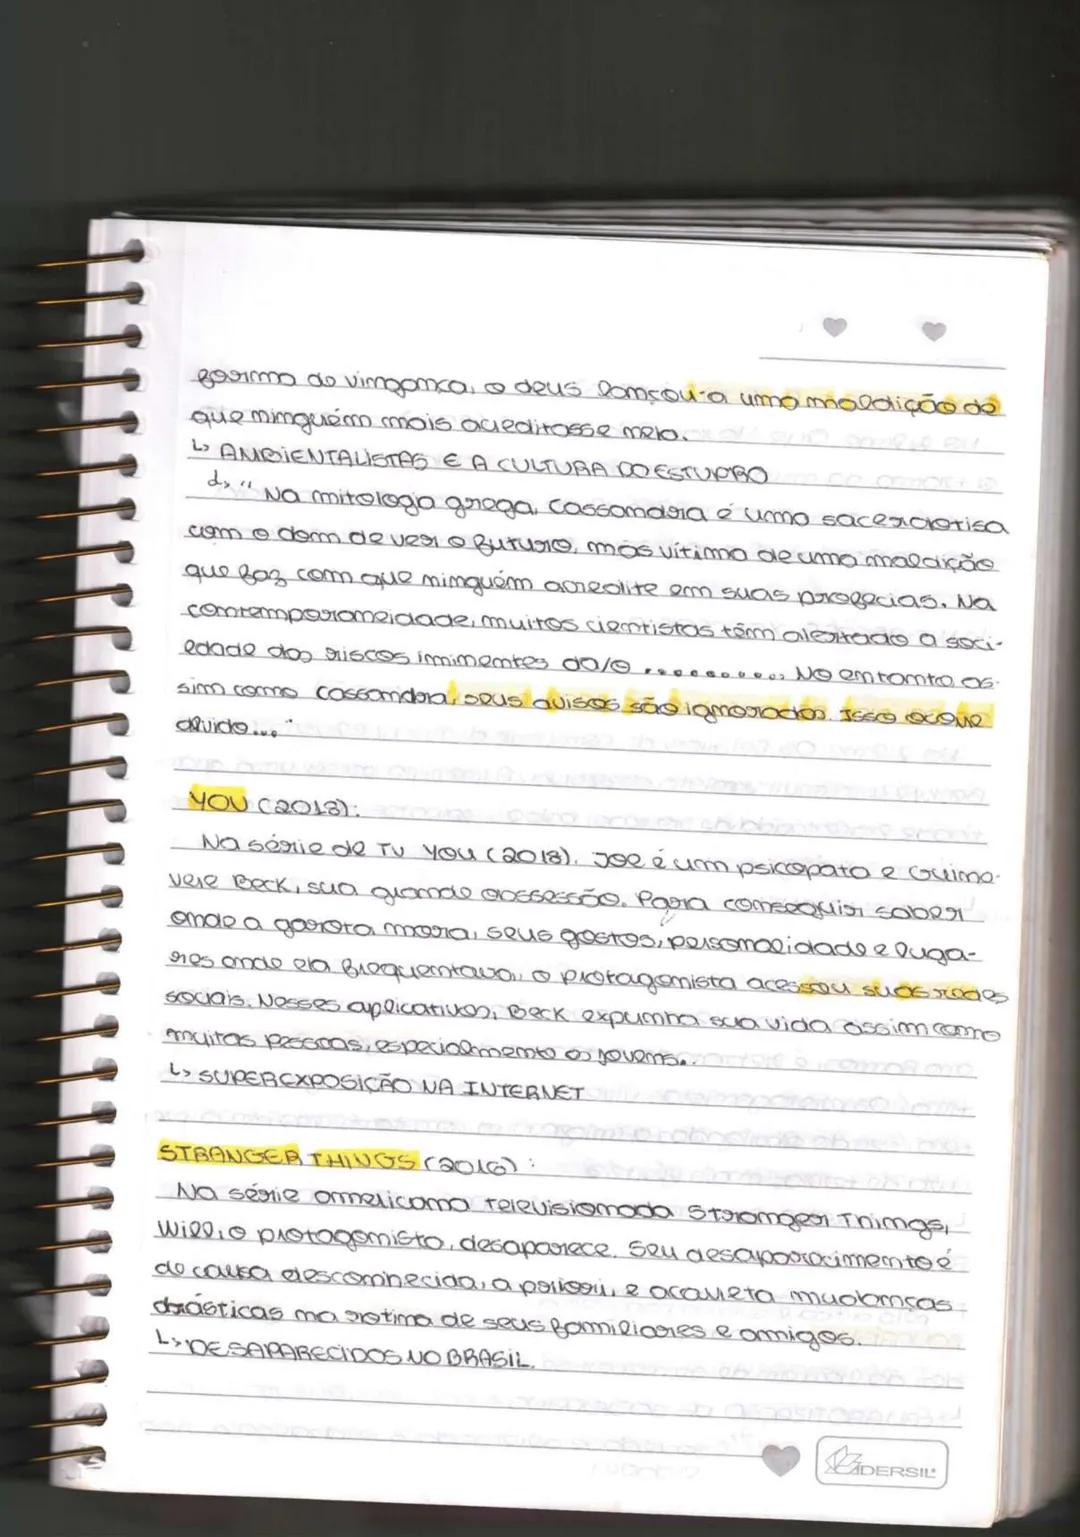 forma de vingança, o deus lançou-a uma maldição de
que ninguém mais acreditasse nela.
↳ AMBIENTALISTAS E A CULTURA DO ESTUPRO
↳ "Na mitologia grega, Cassandra é uma sacerdotisa
com o dom de ver o futuro, mas vítima de uma maldição
que faz com que ninguém acredite em suas profecias. Na
contemporaneidade, muitos cientistas têm alertado a soci-
edade dos riscos iminentes da/o .......... No entanto as-
sim como Cassandra, seus avisos são ignorados. Isso ocorre
devido..."
YOU (2018):
Na série de TV YOU (2018), Joe é um psicopata e Guine-
vere Beck, sua grande obsessão. Para conseguir saber
onde a garota mora, seus gostos, personalidade e luga-
res onde ela frequentava, o protagonista acessou suas redes
sociais. Nesses aplicativos, Beck expunha sua vida assim como
muitas pessoas, especialmente os jovens.
↳ SUPEREXPOSIÇÃO NA INTERNET
STRANGER THINGS (2016):
Na série americana televisionada Stranger Things,
Will, o protagonista, desaparece. Seu desaparecimento é
de causa desconhecida, a priori, e acarreta mudanças
drásticas na rotina de seus familiares e amigos.
↳ DESAPARECIDOS NO BRASIL.
DERSIL